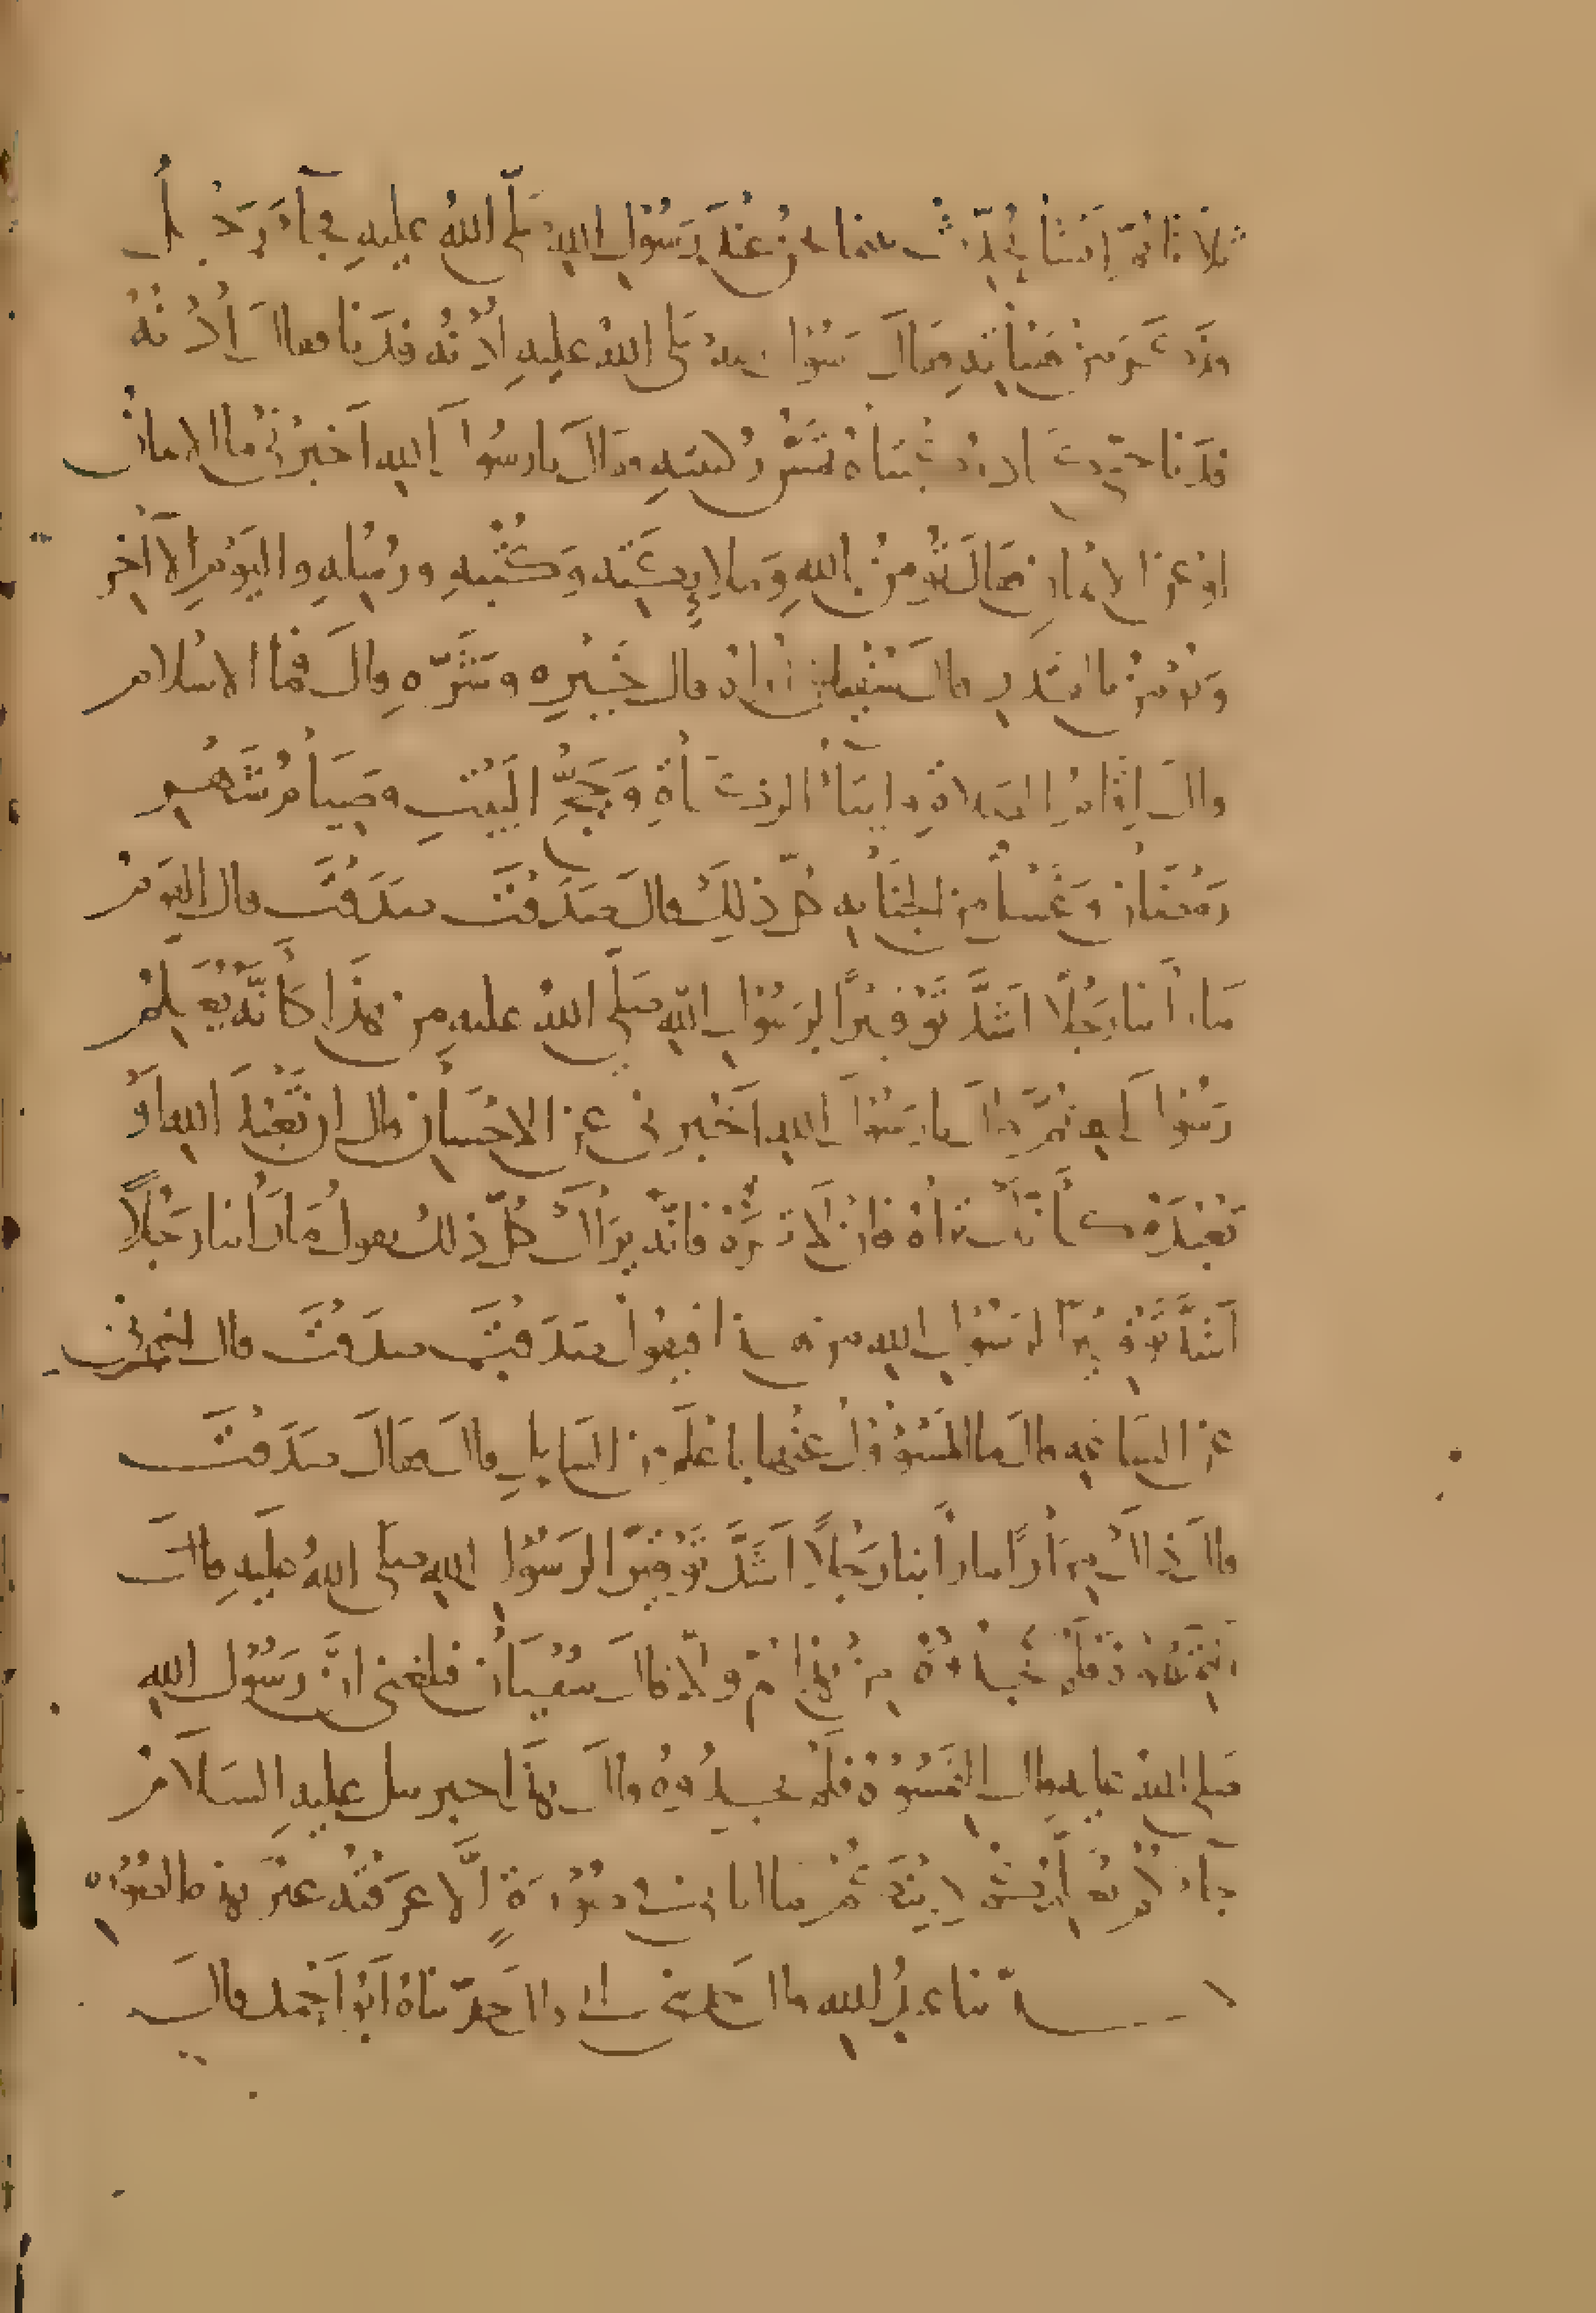 ثلاثا ثم انشا يحدث بينما نحن عند رسول الله صلى الله عليه جاء رجل
فقال رسول الله صلى الله عليه ادنه فدنا فقال ادنه
فدنا حتى كادت ركبتاه تمس ركبتيه فقال يا رسول الله اخبرني ما الايمان
او عن الايمان فقال تؤمن بالله وملائكته وكتبه ورسله واليوم الآخر
وتؤمن بالقدر قال سفيان اراه قال خيره وشره قال فما الاسلام
قال اقام الصلاة وايتاء الزكاة وحج البيت وصيام شهر
رمضان وغسل من الجنابة كل ذلك قال صدقت صدقت قال القوم
ما راينا رجلا اشد توقيرا لرسول الله صلى الله عليه من هذا كأنه يعلم
رسول الله ثم قال يا رسول الله اخبرني عن الاحسان قال ان تعبد الله او
تعبده كأنك تراه فان لا تره فانه يراك كل ذلك نقول ما راينا رجلا
اشد توقيرا لرسول الله من هذا فيقول صدقت صدقت قال اخبرني
عن الساعة قال ما المسؤول عنها باعلم من السايل قال فقال صدقت
قال ذاك مرارا ما راينا رجلا اشد توقيرا لرسول الله صلى الله عليه قال سفيان فبلغني ان رسول الله
صلى الله عليه قال التمسوه فلم يجدوه قال هذا جبريل عليه السلام
جاءكم يعلمكم دينكم ما اتاني في صورة الا عرفته غير هذه الصورة
حدثنا عبد الله قال حدثني ابي قال حدثناه ابو احمد قال